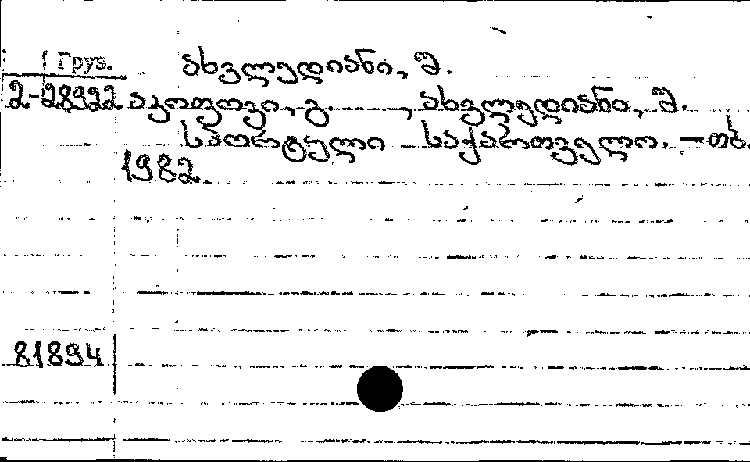 Груз. ახვლედიანი, შ.
2-28922 აკოფოვი, გ. , ახვლედიანი, შ.
სპორტული საქართველო. – თბ.
1982.
81894